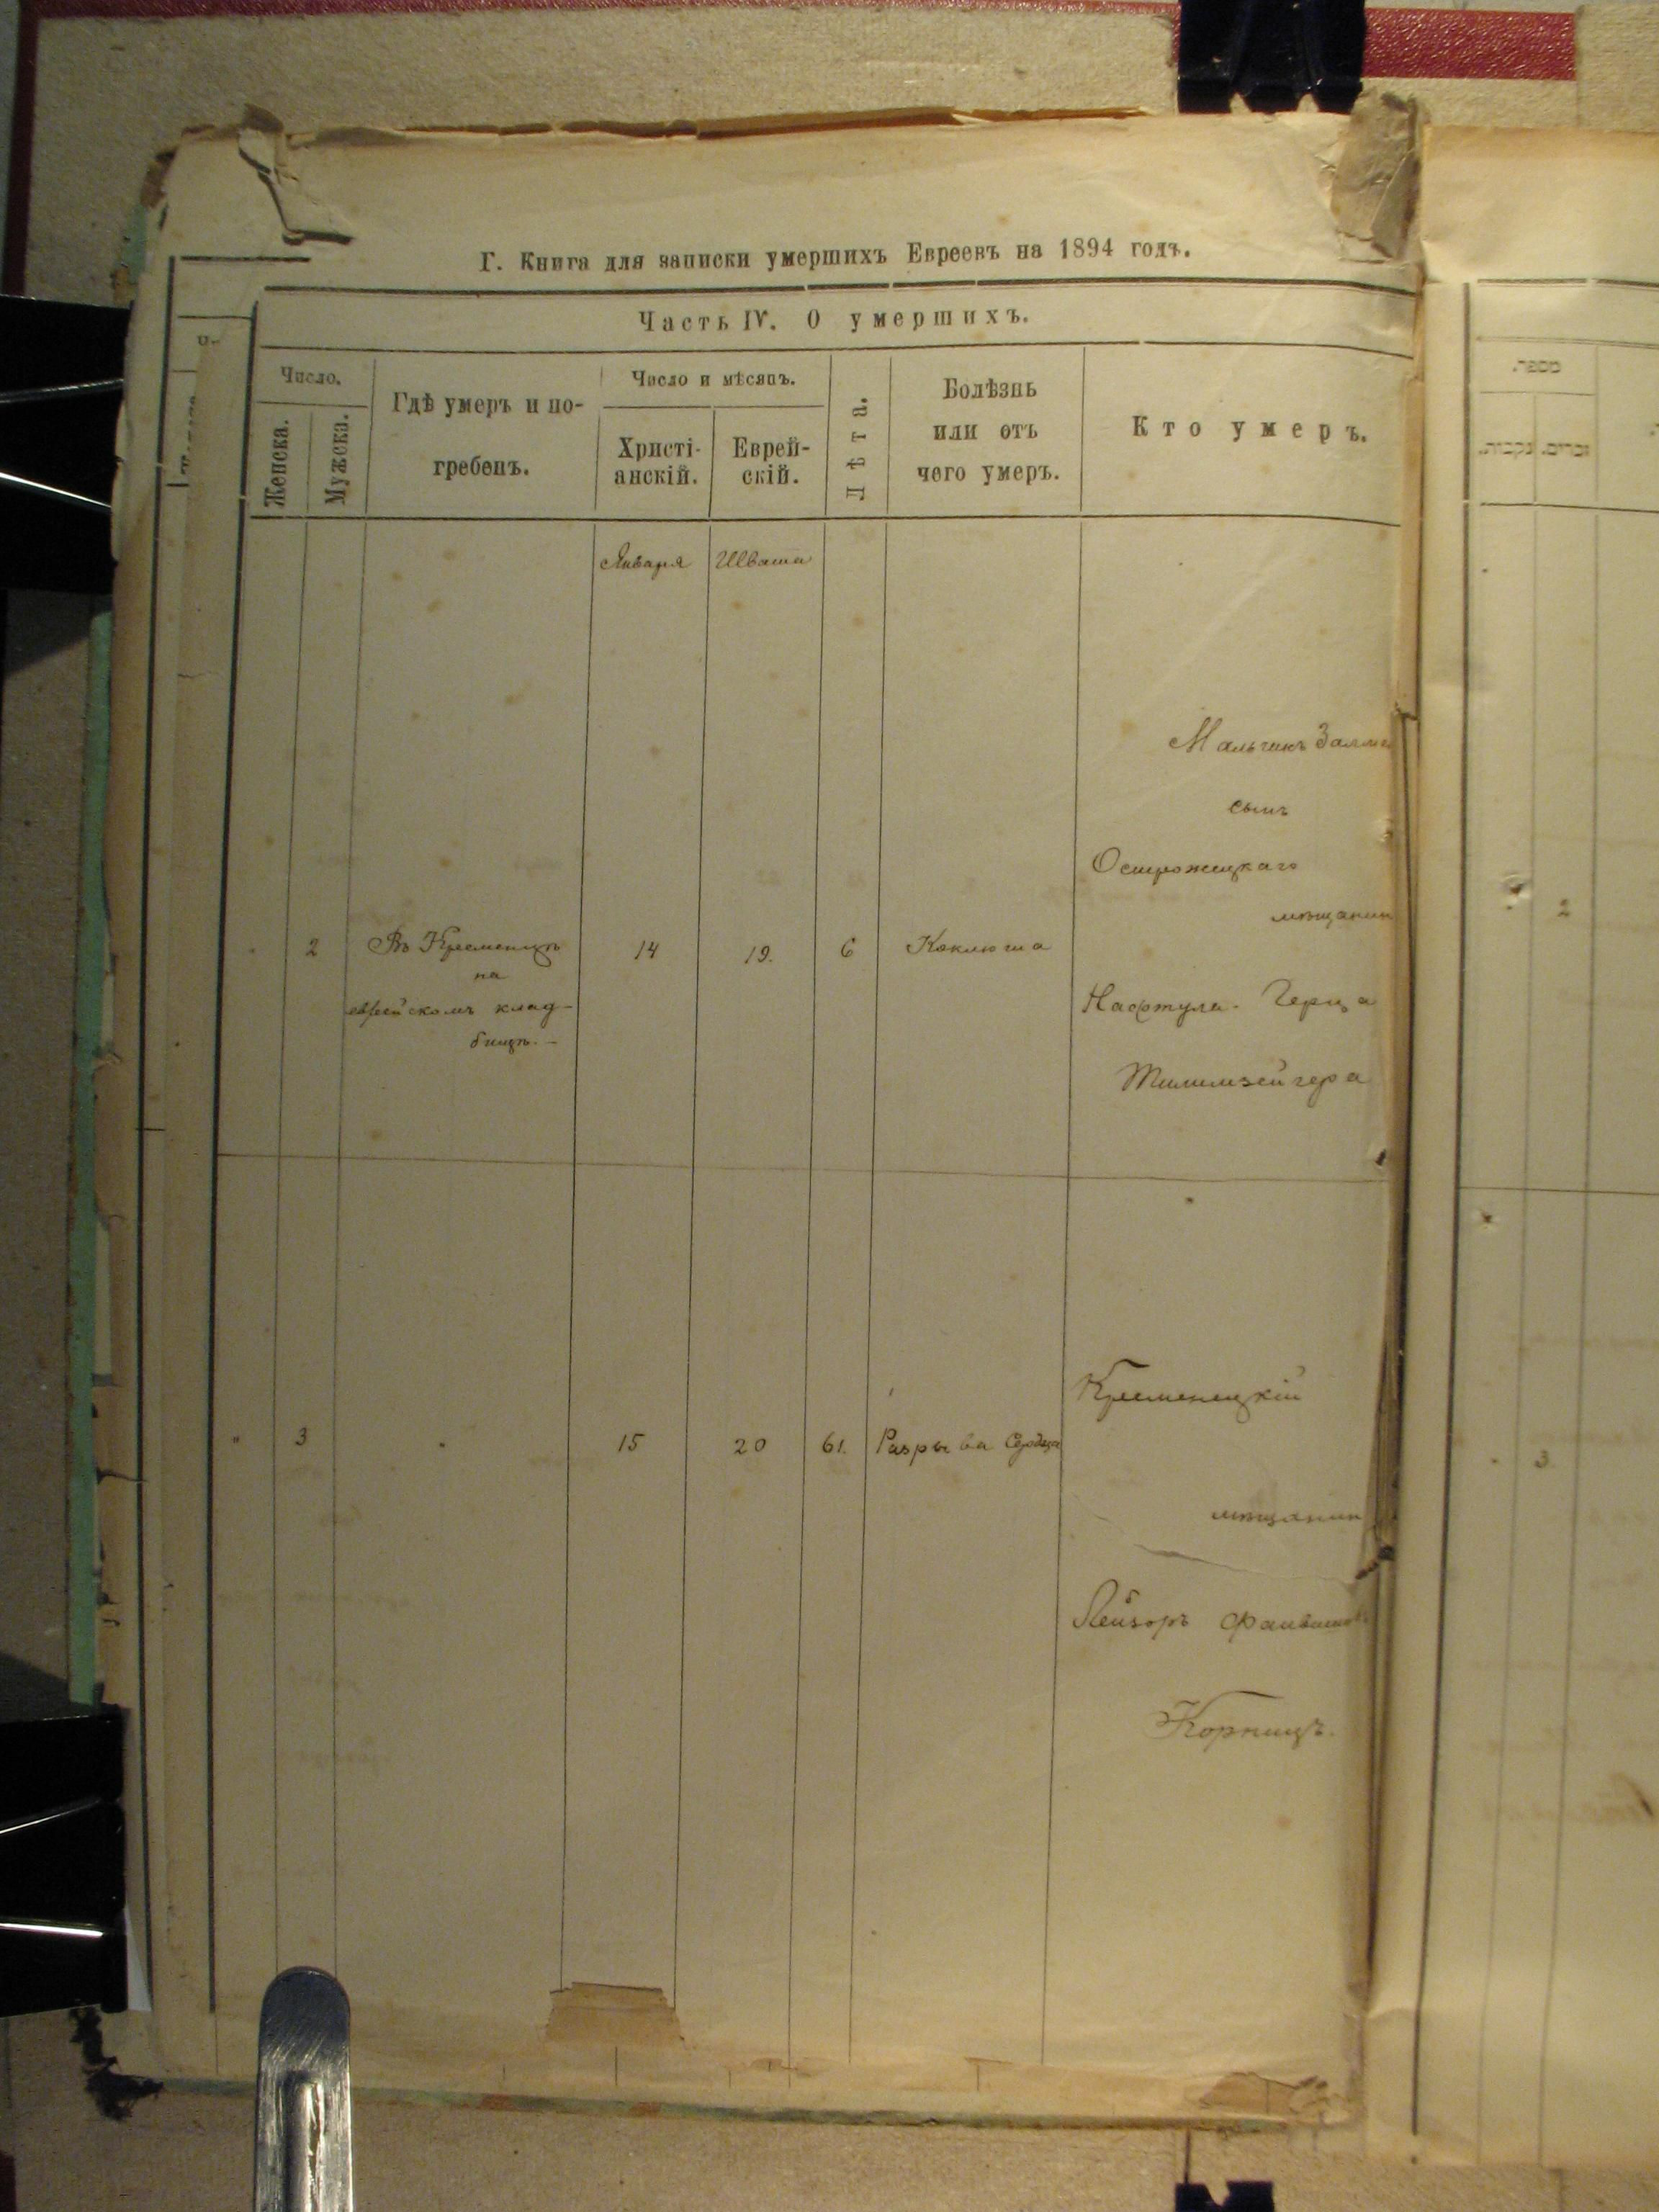 Г. Книга для записки умершихъ Евреевъ на 1894 годъ.
Часть IV. О умершихъ.
Число.
Женска.
Мужска.
Гдѣ умеръ и по-
гребенъ.
Число и мѣсяцъ.
Христі-
анскій.
Еврей-
скій.
Лѣта.
Болѣзнь
или отъ
чего умеръ.
Кто умеръ.
Января
Шватъ
2
Въ Кременцѣ
на
еврейскомъ клад-
бищѣ. -
14
19.
6
Коклюша
Мальчикъ
сынъ
Острожецкаго
мѣщанин
Нафтула-Герца
3
15
20
61.
Разрыва Сердца
Кременецкій
мѣщанин
Лейзоръ
Корницъ.
2
3